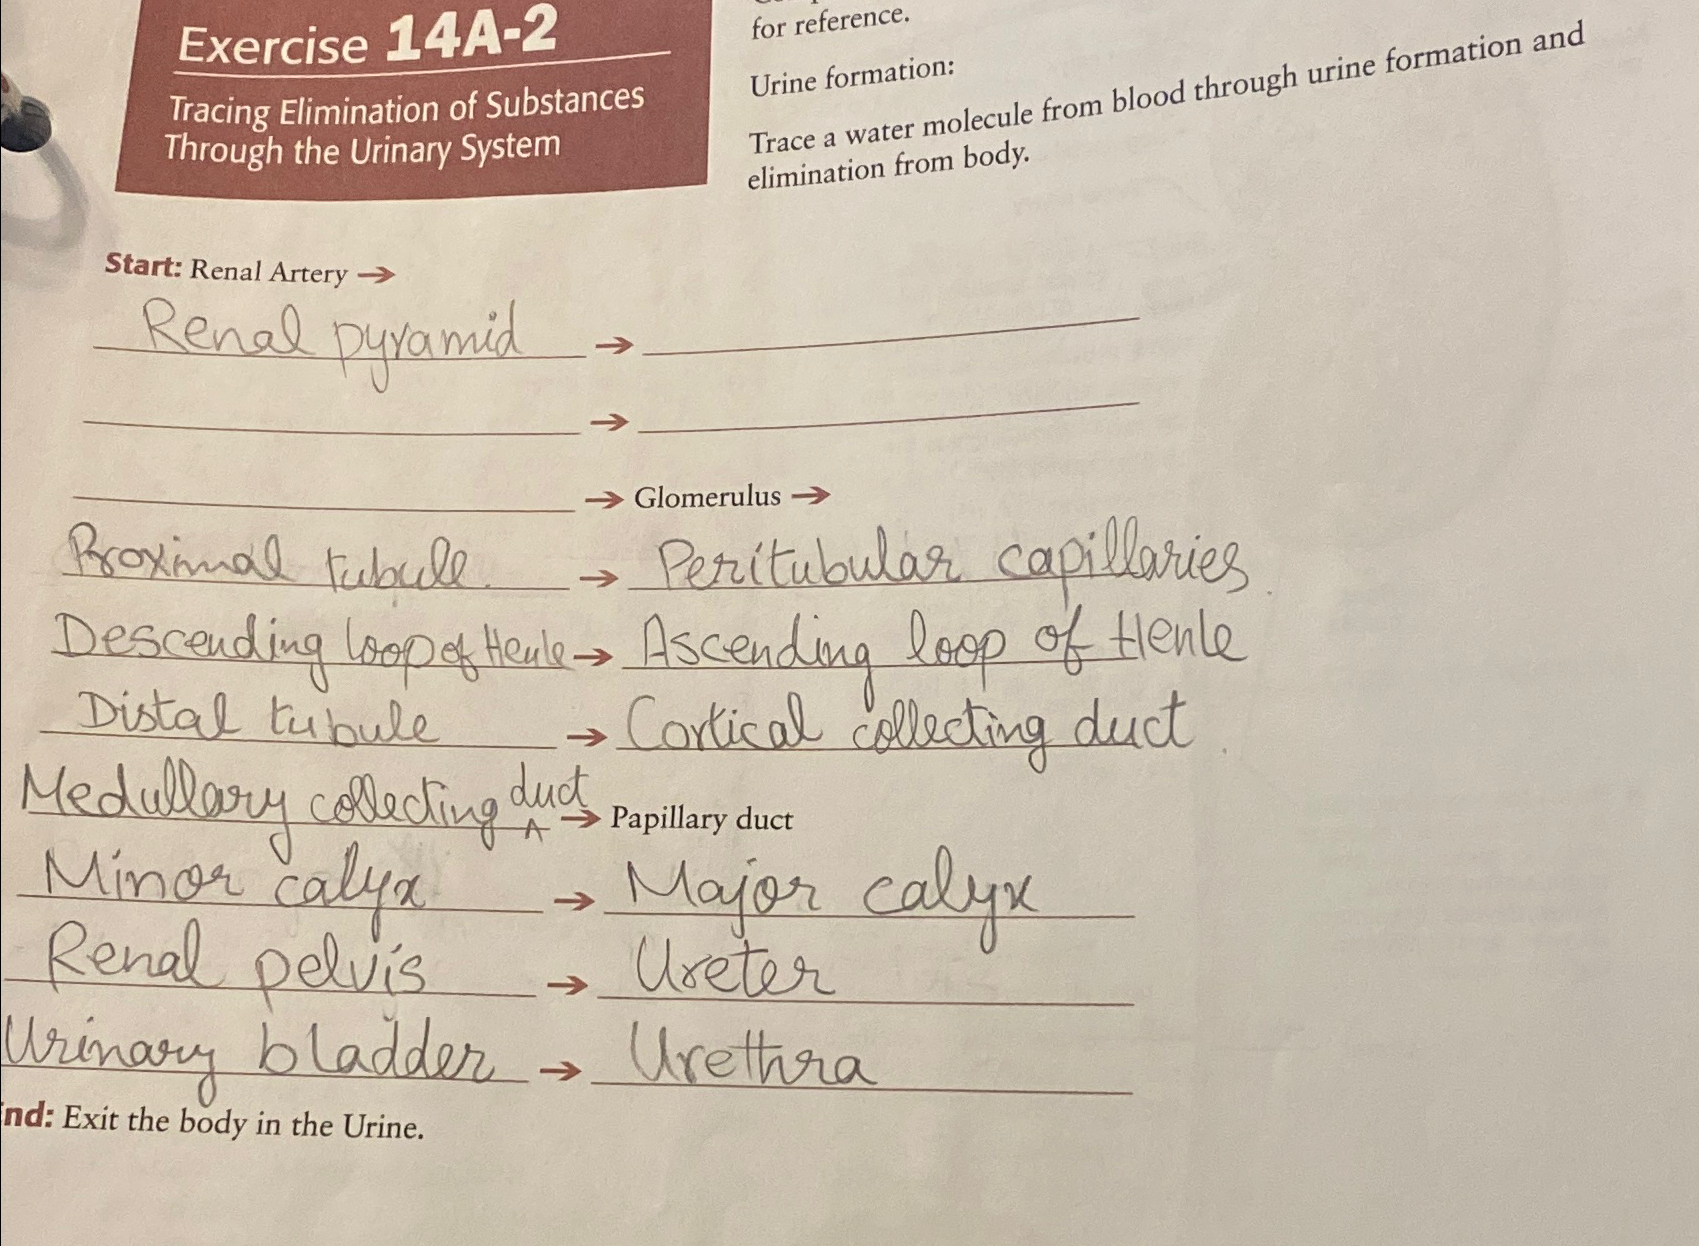 Exercise 14A-2
Tracing Elimination of Substances
Through the Urinary System
for reference.
Urine formation:
Trace a water molecule from blood through urine formation and
elimination from body.
Start: Renal Artery →
Renal pyramid →
→
→ Glomerulus →
Proximal tubule → Peritubular capillaries
Descending loop of Henle → Ascending loop of Henle
Distal tubule → Cortical collecting duct
Medullary collecting duct → Papillary duct
Minor calyx → Major calyx
Renal pelvis → Ureter
Urinary bladder → Urethra
nd: Exit the body in the Urine.